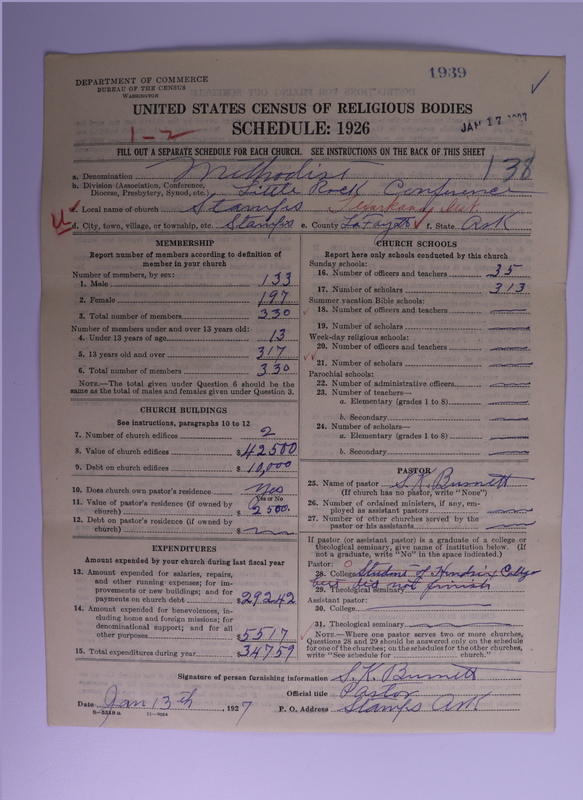 1939
DEPARTMENT OF COMMERCE
BUREAU OF THE CENSUS
WASHINGTON
UNITED STATES CENSUS OF RELIGIOUS BODIES
SCHEDULE: 1926
JAN 17 1927
1-2
FILL OUT A SEPARATE SCHEDULE FOR EACH CHURCH. SEE INSTRUCTIONS ON THE BACK OF THIS SHEET
138
a. Denomination Methodist
b. Division (Association, Conference, Diocese, Presbytery, Synod, etc.) Little Rock Conference
c. Local name of church Stamps Texarkana Dist
d. City, town, village, or township, etc. Stamps e. County LaFayett f. State Ark
MEMBERSHIP
Report number of members according to definition of member in your church
Number of members, by sex:
1. Male 133
2. Female 197
3. Total number of members 330
Number of members under and over 13 years old:
4. Under 13 years of age 13
5. 13 years old and over 317
6. Total number of members 330
NOTE.—The total given under Question 6 should be the same as the total of males and females given under Question 3.
CHURCH BUILDINGS
See instructions, paragraphs 10 to 12
7. Number of church edifices 2
8. Value of church edifices $42500
9. Debt on church edifices $10,000
10. Does church own pastor's residence Yes
Yes or No
11. Value of pastor's residence (if owned by church) $2500.
12. Debt on pastor's residence (if owned by church) $
EXPENDITURES
Amount expended by your church during last fiscal year
13. Amount expended for salaries, repairs, and other running expenses; for improvements or new buildings; and for payments on church debt $29242
14. Amount expended for benevolences, including home and foreign missions; for denominational support; and for all other purposes $5517
15. Total expenditures during year $34759
CHURCH SCHOOLS
Report here only schools conducted by this church
Sunday schools:
16. Number of officers and teachers 35
17. Number of scholars 313
Summer vacation Bible schools:
18. Number of officers and teachers
19. Number of scholars
Week-day religious schools:
20. Number of officers and teachers
21. Number of scholars
Parochial schools:
22. Number of administrative officers
23. Number of teachers—
a. Elementary (grades 1 to 8)
b. Secondary
24. Number of scholars—
a. Elementary (grades 1 to 8)
b. Secondary
PASTOR
25. Name of pastor S.K. Burnett
(If church has no pastor, write "None")
26. Number of ordained ministers, if any, employed as assistant pastors
27. Number of other churches served by the pastor or his assistants
If pastor (or assistant pastor) is a graduate of a college or theological seminary, give name of institution below. (If not a graduate, write "No" in the space indicated.)
Pastor: O
28. College Student of Hendrix College
but did not finish
29. Theological seminary
Assistant pastor:
30. College
31. Theological seminary
NOTE.—Where one pastor serves two or more churches, Questions 28 and 29 should be answered only on the schedule for one of the churches; on the schedules for the other churches, write "See schedule for church."
Signature of person furnishing information S.K. Burnett
Official title Pastor
Date Jan 13th, 1927 P. O. Address Stamps Ark